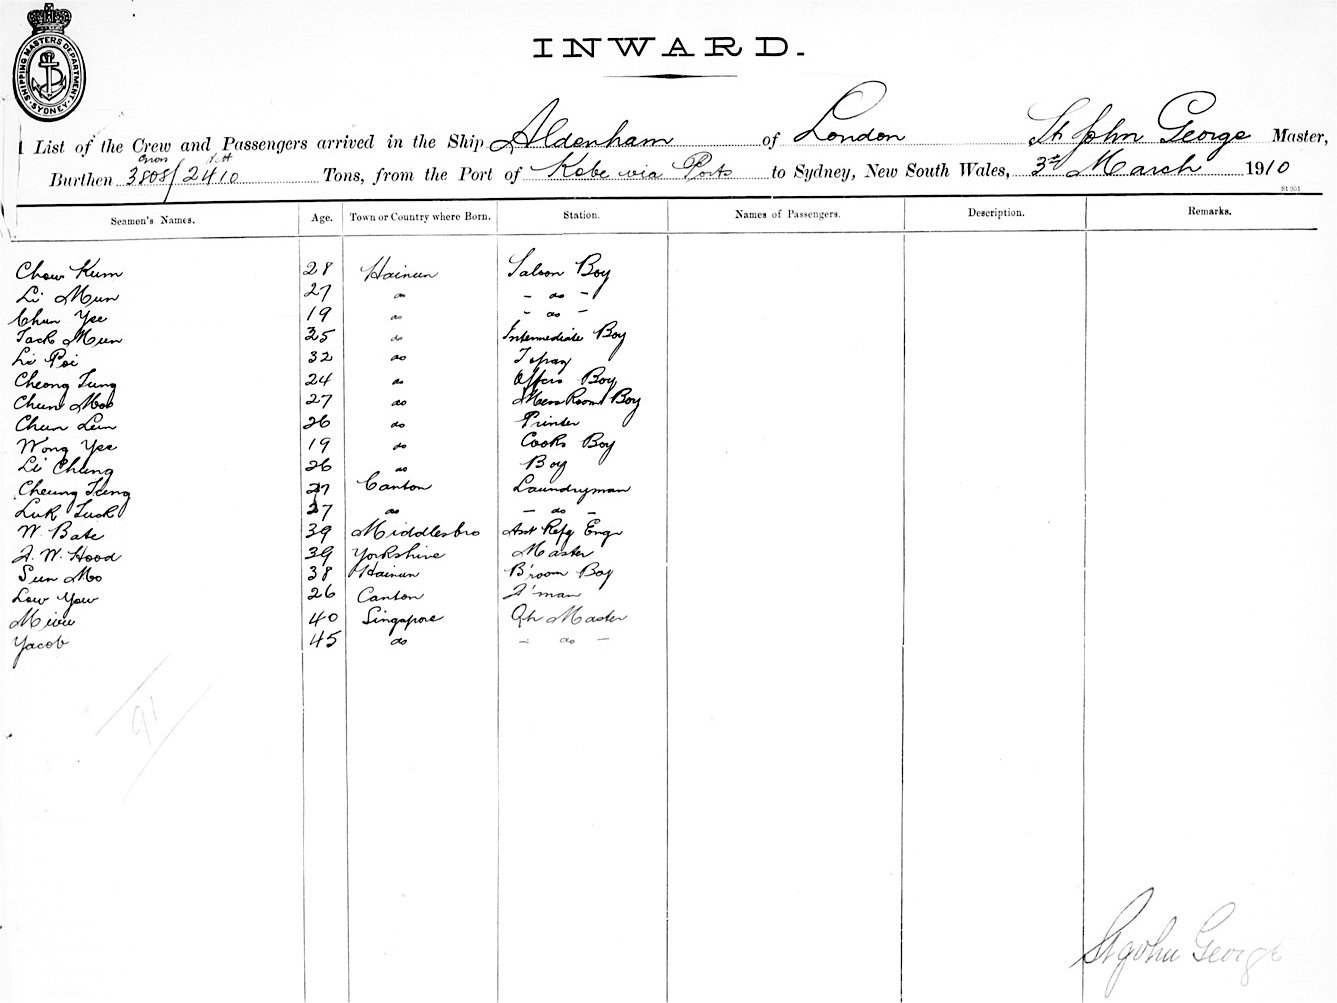 SHIPPING MASTERS DEPARTMENT. SYDNEY.
INWARD.
List of the Crew and Passengers arrived in the Ship Aldenham of London St John George Master,
Gross Nett
Burthen 3808/2410 Tons, from the Port of Kobe via Ports to Sydney, New South Wales, 3rd March 1910
Seamen's Names. Age. Town or Country where Born. Station. Names of Passengers. Description. Remarks.
Chow Kum 28 Hainun Saloon Boy
Li Mun 27 do - do -
Chun Yee 19 do - do -
Tack Mun 35 do Intermediate Boy
Li Poi 32 do Topay
Cheong Tung 24 do Offrs Boy
Chun Moo 27 do Mess Room Boy
Chun Len 26 do Printer
Wong Yee 19 do Cooks Boy
Li Chung 26 do Boy
Cheung Tung 27 Canton Laundryman
Luk Tuck 27 do - do -
W. Bate 39 Middlesbro Asst Refg Engr
F. W. Hood 39 Yorkshire Master
Sun Mo 38 Hainun B'room Boy
Low Yow 26 Canton F'man
40 Singapore Qr Master
Yacob 45 do - do -
91
St John George